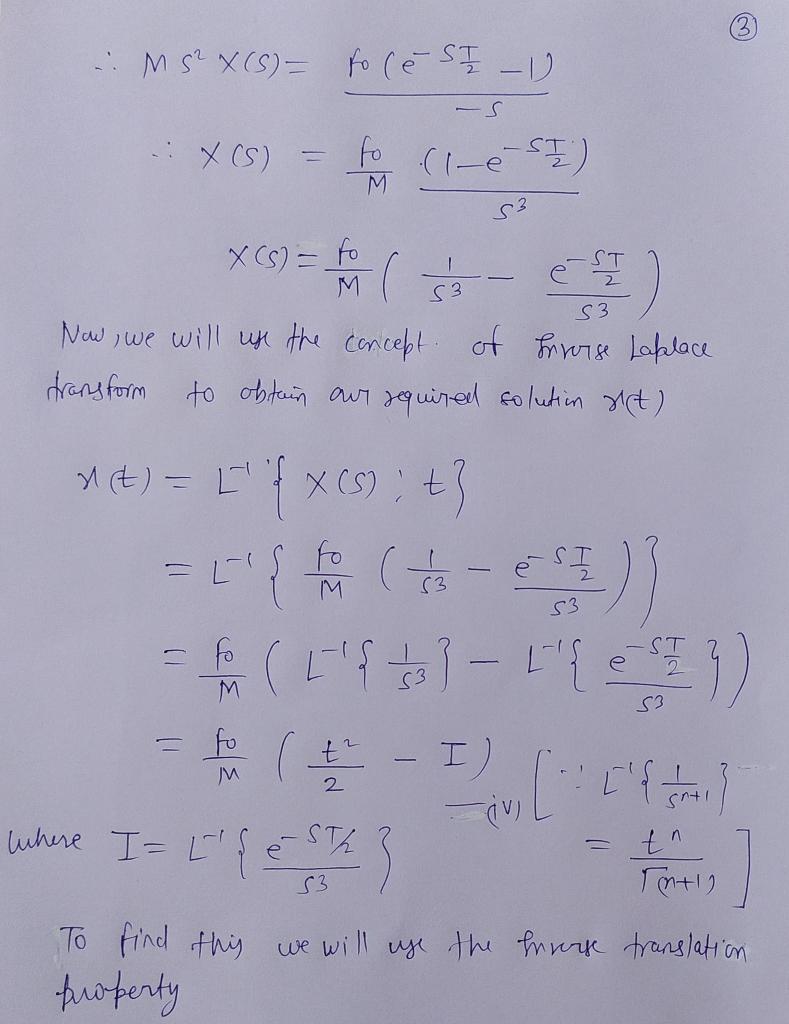 ③
∴ M S² X(S) = fo (e^{-ST/2} - 1) / -S
∴ X(S) = fo/M (1 - e^{-ST/2}) / S³
X(S) = fo/M ( 1/S³ - e^{-ST/2}/S³ )
Now, we will use the concept of Inverse Laplace
transform to obtain our required solution x(t)
x(t) = L⁻¹{ X(S) ; t}
= L⁻¹{ fo/M ( 1/S³ - e^{-ST/2}/S³ )}
= fo/M ( L⁻¹{ 1/S³ } - L⁻¹{ e^{-ST/2}/S³ })
= fo/M ( t²/2 - I) —(iv) [∵ L⁻¹{ 1/S^{n+1} }
where I = L⁻¹{ e^{-ST/2}/S³ } = t^n/Γ(n+1) ]
To find this we will use the Inverse translation
property